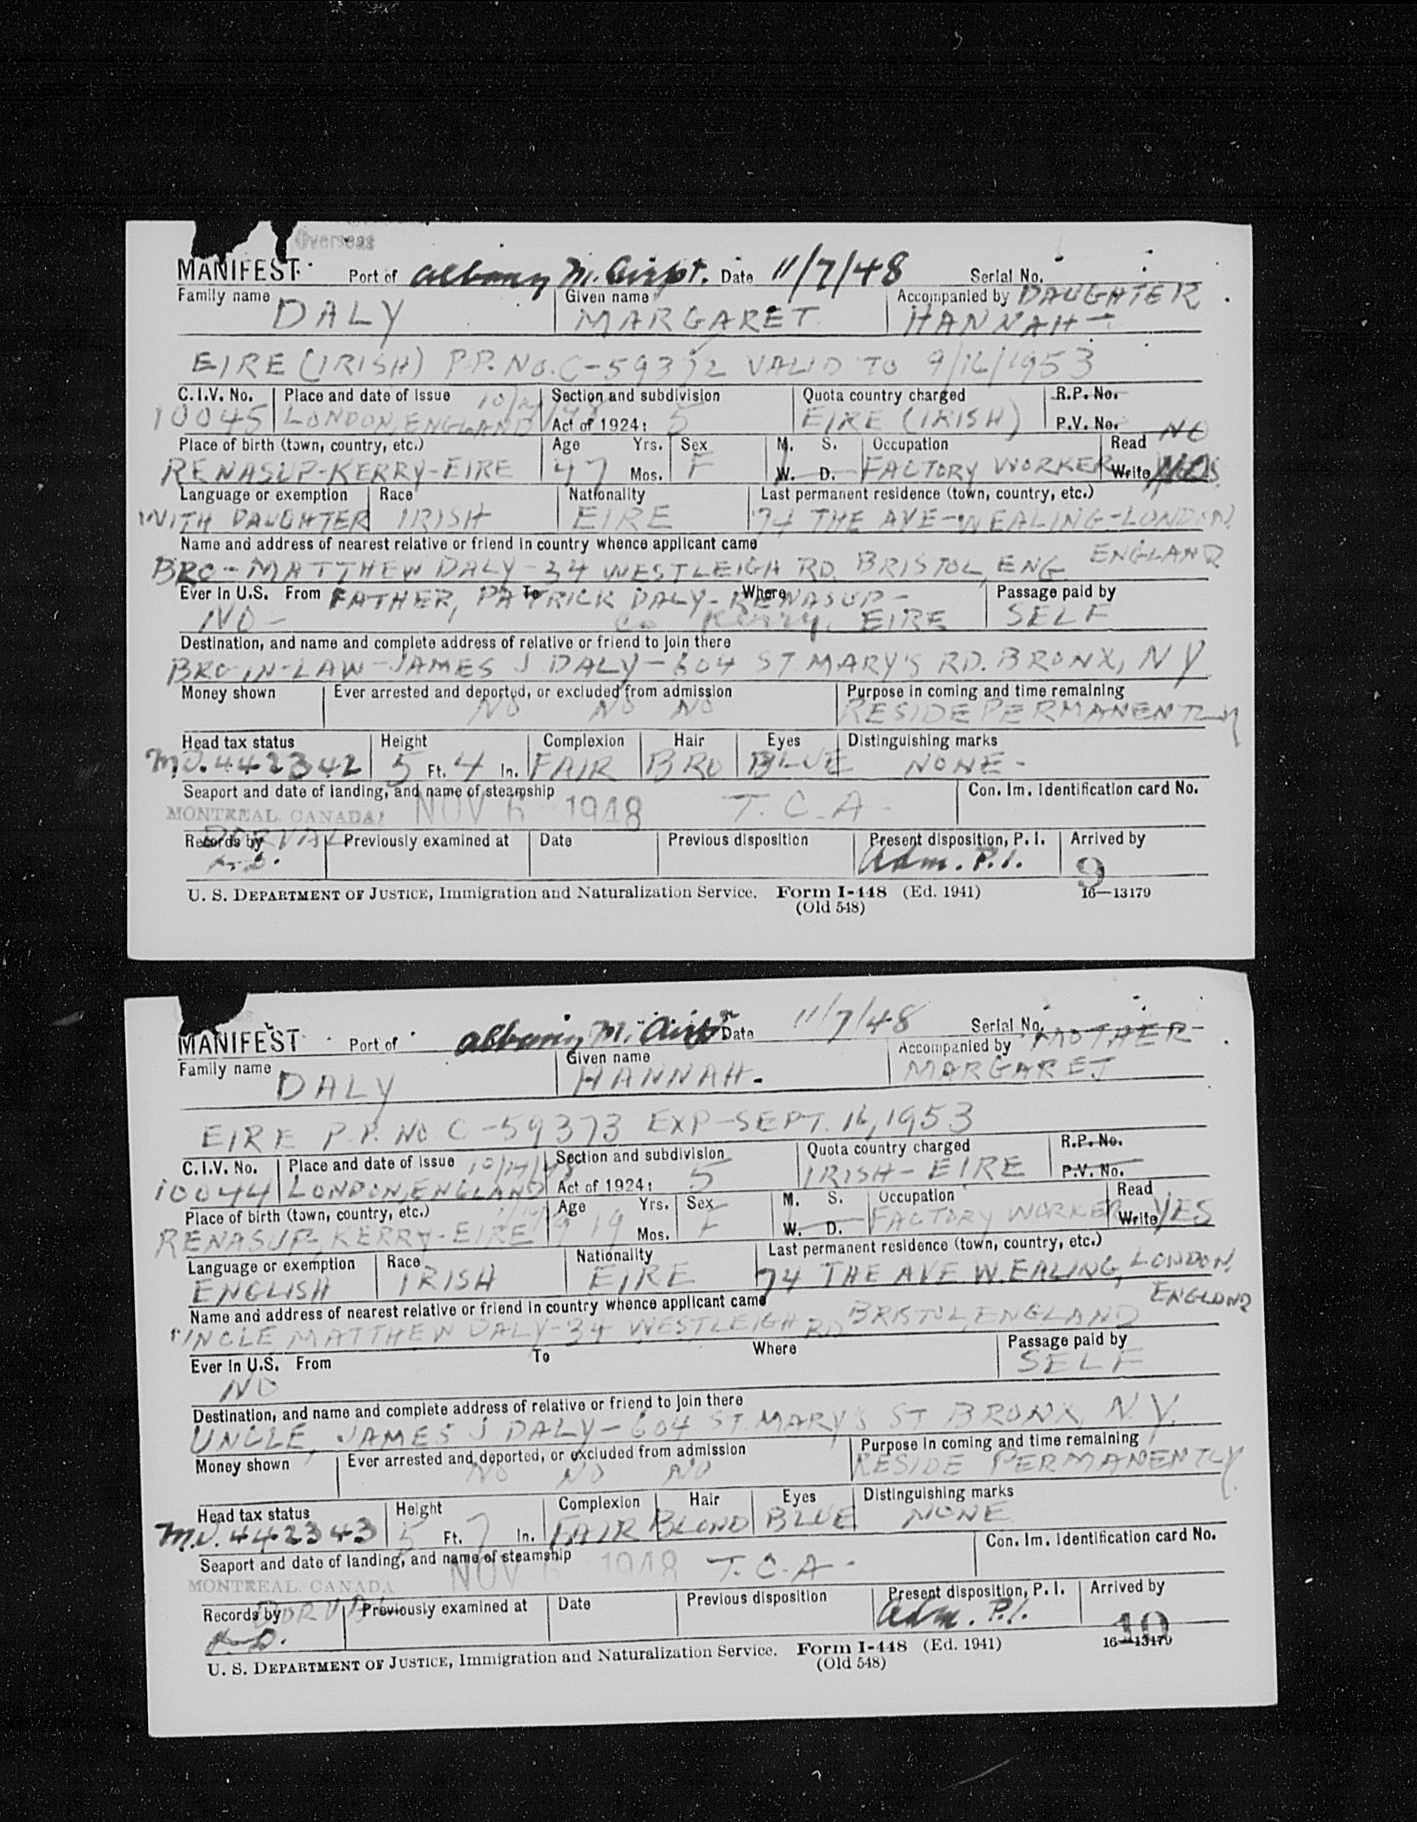 Overseas
MANIFEST Port of Albany M. Airpt. Date 11/7/48 Serial No.
Family name DALY Given name MARGARET Accompanied by DAUGHTER HANNAH
EIRE (IRISH) P.P. NO. C-59372 VALID TO 9/16/1953
C.I.V. No. 10045 Place and date of issue LONDON, ENGLAND Section and subdivision Act of 1924: 5 Quota country charged EIRE (IRISH) R.P. No. P.V. No.
Place of birth (town, country, etc.) RENASUP-KERRY-EIRE Age 47 Yrs. Mos. Sex F M. S. W. D. Occupation FACTORY WORKER Read NO Write
Language or exemption WITH DAUGHTER Race IRISH Nationality EIRE Last permanent residence (town, country, etc.) 74 THE AVE-WEALING-LONDON
ENGLAND
Name and address of nearest relative or friend in country whence applicant came
BRO-MATTHEW DALY-34 WESTLEIGH RD. BRISTOL, ENG
Ever in U.S. NO- From To Where Passage paid by SELF
FATHER, PATRICK DALY-RENASUP-
Co Kerry, EIRE
Destination, and name and complete address of relative or friend to join there
BRO-IN-LAW-JAMES J DALY-604 ST MARY'S RD. BRONX, NY
Money shown Ever arrested and deported, or excluded from admission NO NO NO Purpose in coming and time remaining RESIDE PERMANENTLY
Head tax status M.V. 442342 Height 5 Ft. 4 In. Complexion FAIR Hair BRO Eyes BLUE Distinguishing marks NONE-
Seaport and date of landing, and name of steamship MONTREAL, CANADA NOV 6 1948 T.C.A- Con. Im. Identification card No.
DORVAL
Records by Previously examined at Date Previous disposition Present disposition, P. I. Adm. P.I. Arrived by 9
U. S. DEPARTMENT OF JUSTICE, Immigration and Naturalization Service. Form I-448 (Ed. 1941) 16—13179
(Old 548)
MANIFEST Port of Albany M. Airpt Date 11/7/48 Serial No.
Family name DALY Given name HANNAH- Accompanied by MOTHER MARGARET
EIRE P.P. NO C-59373 EXP-SEPT. 16, 1953
C.I.V. No. 10044 Place and date of issue LONDON, ENGLAND Section and subdivision Act of 1924: 5 Quota country charged IRISH-EIRE R.P. No. P.V. No.
Place of birth (town, country, etc.) RENASUP, KERRY-EIRE Age 19 Yrs. Mos. Sex F M. S. W. D. Occupation FACTORY WORKER Read Write YES
Language or exemption ENGLISH Race IRISH Nationality EIRE Last permanent residence (town, country, etc.) 74 THE AVE W. EALING, LONDON,
ENGLAND
Name and address of nearest relative or friend in country whence applicant came
UNCLE MATTHEW DALY-34 WESTLEIGH RD BRISTOL, ENGLAND
Ever in U.S. NO From To Where Passage paid by SELF
Destination, and name and complete address of relative or friend to join there
UNCLE, JAMES J DALY-604 ST. MARY'S ST BRONX, N.Y.
Money shown Ever arrested and deported, or excluded from admission NO NO NO Purpose in coming and time remaining RESIDE PERMANENTLY
Head tax status M.V. 442343 Height 5 Ft. 7 In. Complexion FAIR Hair BLOND Eyes BLUE Distinguishing marks NONE
Seaport and date of landing, and name of steamship MONTREAL, CANADA NOV 6 1948 T.C.A- Con. Im. Identification card No.
DORVAL
Records by Previously examined at Date Previous disposition Present disposition, P. I. Adm. P.I. Arrived by 10
U. S. DEPARTMENT OF JUSTICE, Immigration and Naturalization Service. Form I-448 (Ed. 1941) 16—13179
(Old 548)